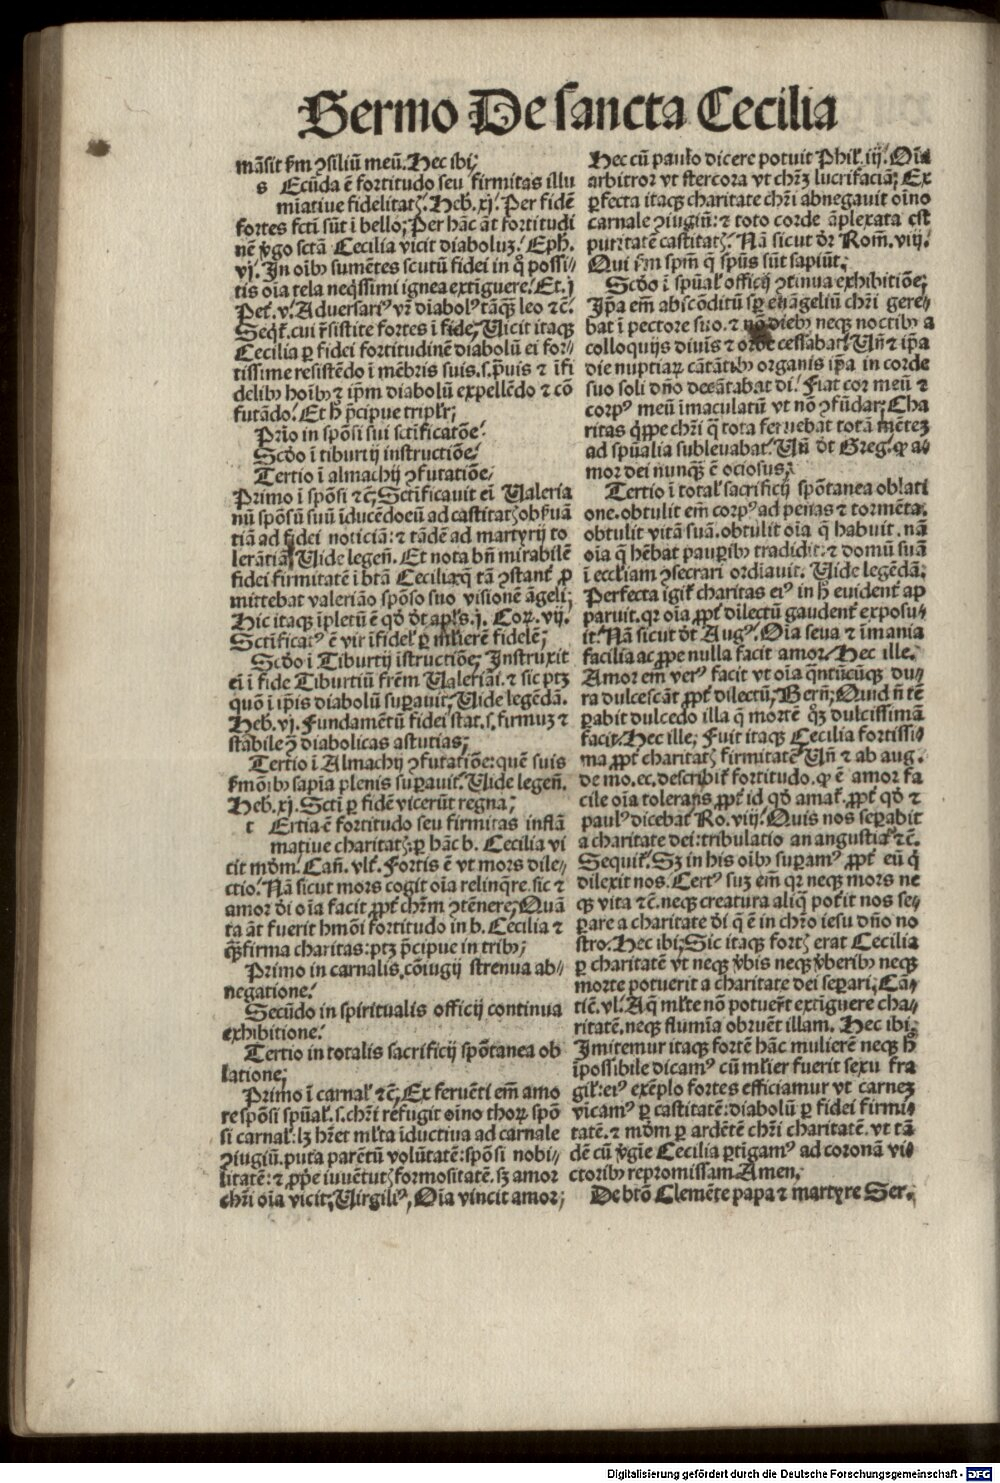 Sermo De sancta Cecilia
mãsit ẜm ꝯsiliũ meũ. Hec ibi;
s Ecũda ẽ fortitudo seu firmitas illu
mĩatiue fidelitatꝭ. Heb. xj. Per fidẽ
fortes fcti sũt ĩ bello; Per hãc ãt fortitudi
nẽ v̾go sctã Cecilia vicit diaboluꝫ. Eph.
vj. In oĩbꝰ sumẽtes scutũ fidei in q̊ possi⸗
tis oĩa tela neq̇ssimi ignea extĩguere. Et .j
Pet. v. Adversariꝰ vr̃ diabolꝰ tãqꝫ leo ⁊c̃.
Seqr̃. cui r̃sistite fortes ĩ fide; Uicit itaqꝫ
Cecilia ꝑ fidei fortitudinẽ diabolũ ei for⸗
tissime resistẽdo ĩ mẽbris suis. s. ꝓuis ⁊ ĩfi
delibꝰ hoĩbꝰ ⁊ ip̃m diabolũ expellẽdo ⁊ cõ
futãdo. Et h̾ p̃cipue tripl̃r;
Prio in spõsi sui sctĩficatõe.
Scd̾o ĩ tiburtij instructiõe;
Tertio ĩ almachij ꝯfutatiõe;
Primo ĩ spõsi ⁊c̃; Sctĩficauit eĩ Ualeria
nũ spõsũ suũ ĩducẽdoeũ ad castitatꝭ obẜuã
tiã ad fidei noticiã: ⁊ tãdẽ ad martyrij to
lerãtiã. Uide legeñ. Et nota bñ mirabilẽ
fidei firmitatẽ ĩ btã Cecilia: q̃ tã ꝯstant̃ ꝓ
mittebat valeriãno spõso suo visionẽ ãgeli;
Hic itaqꝫ ĩpletũ ẽ qd̾ d̾t apl̃s. j. Coꝝ. vij.
Sctĩficatꝰ ẽ vir ĩfidel̃ ꝑ ml̃ierẽ fidelẽ;
Scd̾o ĩ Tiburtij ĩstructiõe; Instruxit
eĩ ĩ fide Tiburtiũ fr̃em Ualeriãi. ⁊ sic ptꝫ
quõ ĩ ip̃is diabolũ suꝑauit; Uide legẽdã.
Heb. vj. Fundamẽtũ fidei stat. s. firmuꝫ ⁊
stabile ꝯ̃ diabolicas astutias;
Tertio ĩ Almachij ꝯfutatiõe: quẽ suis
ẜmõibꝰ sapĩa plenis suꝑauit. Uide legeñ.
Heb. xj. Sctĩ ꝑ fidẽ vicerũt regna;
t Ertia ẽ fortitudo seu firmitas inflã
matiue charitatꝭ: ꝑ hãc b. Cecilia vi
cit md̾m. Cañ. vlt̃. Fortis ẽ vt mors dile⸗
ctio. Nã sicut mors cogit oĩa relinq̃re. sic ⁊
amor d̾i oĩa facit ꝓpt̃ chr̃m ꝯtẽnere; Quã
ta ãt fuerit hmõi fortitudo in b. Cecilia ⁊
q̃ꝫfirma charitas: ptꝫ p̃cipue in tribꝰ;
Primo in carnalis cõiugij strenua ab⸗
negatione.
Secũdo in spiritualis officij continua
exhibitione.
Tertio in totalis sacrificij spõtanea ob
latione;
Primo ĩ carnal̃ ⁊c̃; Ex feruẽti em̃ amo
re spõsi spũal̃. s. chr̃i refugit oĩno thoꝝ spõ
si carnal̃: lꝫ hr̃et ml̃ta ĩductiua ad carnale
ꝯiugiũ. puta parẽtũ volũtatẽ: spõsi nobi⸗
litatẽ: ⁊ ꝓpe iuuẽtutꝭ formositatẽ. sꝫ amor
chr̃i oĩa vicit; Uirgiliꝰ, Oĩa vincit amor;
Hec cũ paulo dicere potuit Phil̃. iij. Oĩa
arbitror vt stercora vt chr̃ꝫ lucrifaciã; Ex
ꝑfecta itaqꝫ charitate chr̃i abnegauit oĩno
carnale ꝯiugiũ: ⁊ toto corde ãplexata est
puritatẽ castitatꝭ. Nã sicut d̾r Rom̃. viij.
Qui ẜm spm̃ q̃ spũs sũt sapiũt;
Scd̾o ĩ spũal̃ officij ꝯtinua exhibitiõe;
Ip̃a em̃ abscõditũ sp̃ euãgeliũ chr̃i gere⸗
bat ĩ pectore suo. ⁊ nõ diebꝰ neqꝫ noctibꝰ a
colloquijs diuĩs ⁊ or̃oe cessabat. Uñ ⁊ ip̃a
die nuptiaꝝ cãtãtibꝰ organis ip̃a in corde
suo soli dño decãtabat dĩ. Fiat cor meũ ⁊
corpꝰ meũ ĩmaculatũ vt nõ ꝯfũdar; Cha
ritas q̇ppe chr̃i q̃ tota feruebat totã mẽteꝫ
ad spũalia subleuabat. Uñ d̾t Greg. ꝙ a⸗
mor dei nunqꝫ ẽ ociosus;
Tertio ĩ total̃ sacrificij spõtanea oblati
one. obtulit em̃ corpꝰ ad penas ⁊ tormẽta.
obtulit vitã suã. obtulit oĩa q̃ habuit. nã
oĩa q̃ hẽbat pauꝑibꝰ tradidit: ⁊ domũ suã
ĩ eccl̃iam ꝯsecrari ordiauit. Uide legẽdã.
Perfecta igit̃ charitas eiꝰ in h̾ euident̃ ap
paruit. qꝛ oĩa ꝓpt̃ dilectũ gaudent̃ exposu⸗
it. Nã sicut d̾t Augꝰ. Oĩa seua ⁊ ĩmania
facilia ac ꝓpe nulla facit amor. Hec ille.
Amor em̃ verꝰ facit vt oĩa q̃ntũcũqꝫ du⸗
ra dulcescãt ꝓpt̃ dilectũ; Berñ; Quid ñ fẽ
ꝑabit dulcedo illa q̃ mortẽ q̊ꝫ dulcissimã
facit. Hec ille; Fuit itaqꝫ Cecilia fortissi⸗
ma ꝓpt̃ charitatꝭ firmitatẽ Uñ ⁊ ab aug.
de mo. ec. describit̃ fortitudo. ꝙ ẽ amor fa
cile oĩa tolerans ꝓpt̃ id qd̾ amat̃. ꝓpt̃ qd̾ ⁊
paulꝰ dicebat Ro. viij. Quis nos seꝑabit
a charitate dei: tribulatio an angustia ⁊c̃.
Sequit̃. Sꝫ in his oĩbꝰ suꝑamꝰ ꝓpt̃ eũ q̇
dilexit nos. Certꝰ suꝫ em̃ qꝛ neqꝫ mors ne
qꝫ vita ⁊c̃. neqꝫ creatura aliq̃ pot̃it nos se⸗
ꝑare a charitate d̾i q̃ ẽ in chr̃o iesu dño no
stro. Hec ibi; Sic itaqꝫ fortꝭ erat Cecilia
ꝑ charitatẽ vt neqꝫ v̾bis neqꝫ v̾beribꝰ neqꝫ
morte potuerit a charitate dei seꝑari; Cã⸗
tic̃. vl̃. Aq̃ ml̃te nõ potuer̃t extĩguere cha⸗
ritatẽ. neqꝫ flumĩa obruẽt illam. Hec ibi.
Imitemur itaqꝫ fortẽ hãc mulierẽ neqꝫ h̾
ĩpossibile dicamꝰ cũ ml̃ier fuerit sexu fra
gil̃: eiꝰ exẽplo fortes efficiamur vt carneꝫ
vicamꝰ ꝑ castitatẽ: diabolũ ꝑ fidei firmi⸗
tatẽ. ⁊ md̾m ꝑ ardẽtẽ chr̃i charitatẽ. vt tã
dẽ cũ v̾gĩe Cecilia ꝑtĩgamꝰ ad coronã vi⸗
ctoribꝰ repromissam. Amen.
De btõ Clemẽte papa ⁊ martyre Ser.
Digitalisierung gefördert durch die Deutsche Forschungsgemeinschaft - DFG